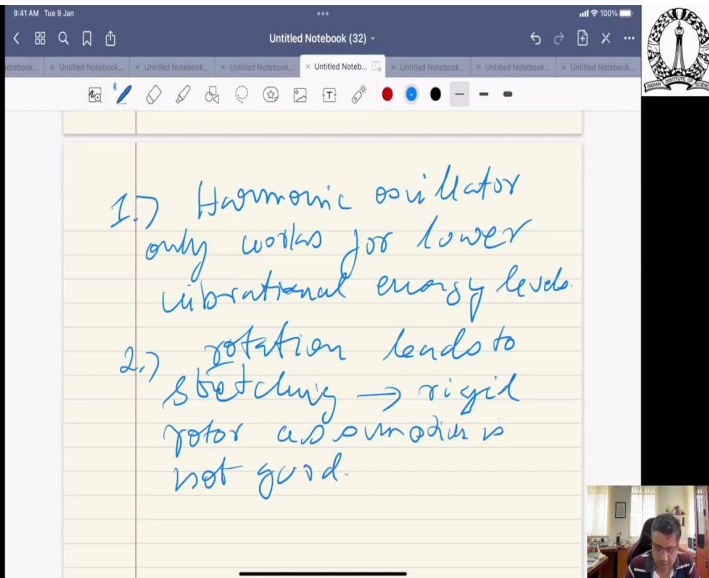 9:41 AM Tue 9 Jan
100%
Untitled Notebook (32)
otebook... × Untitled Notebook... × Untitled Notebook... × Untitled Notebook... × Untitled Noteb... × Untitled Notebook... × Untitled Notebook... × Untitled Notebook...
1.) Harmonic oscillator
only works for lower
vibrational energy levels.
2.) rotation leads to
stretching → rigid
rotor assumption is
not good.